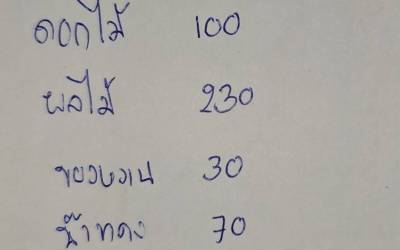 ดอกไม้ 100
ผลไม้ 230
ของหวาน 30
น้ำแดง 70